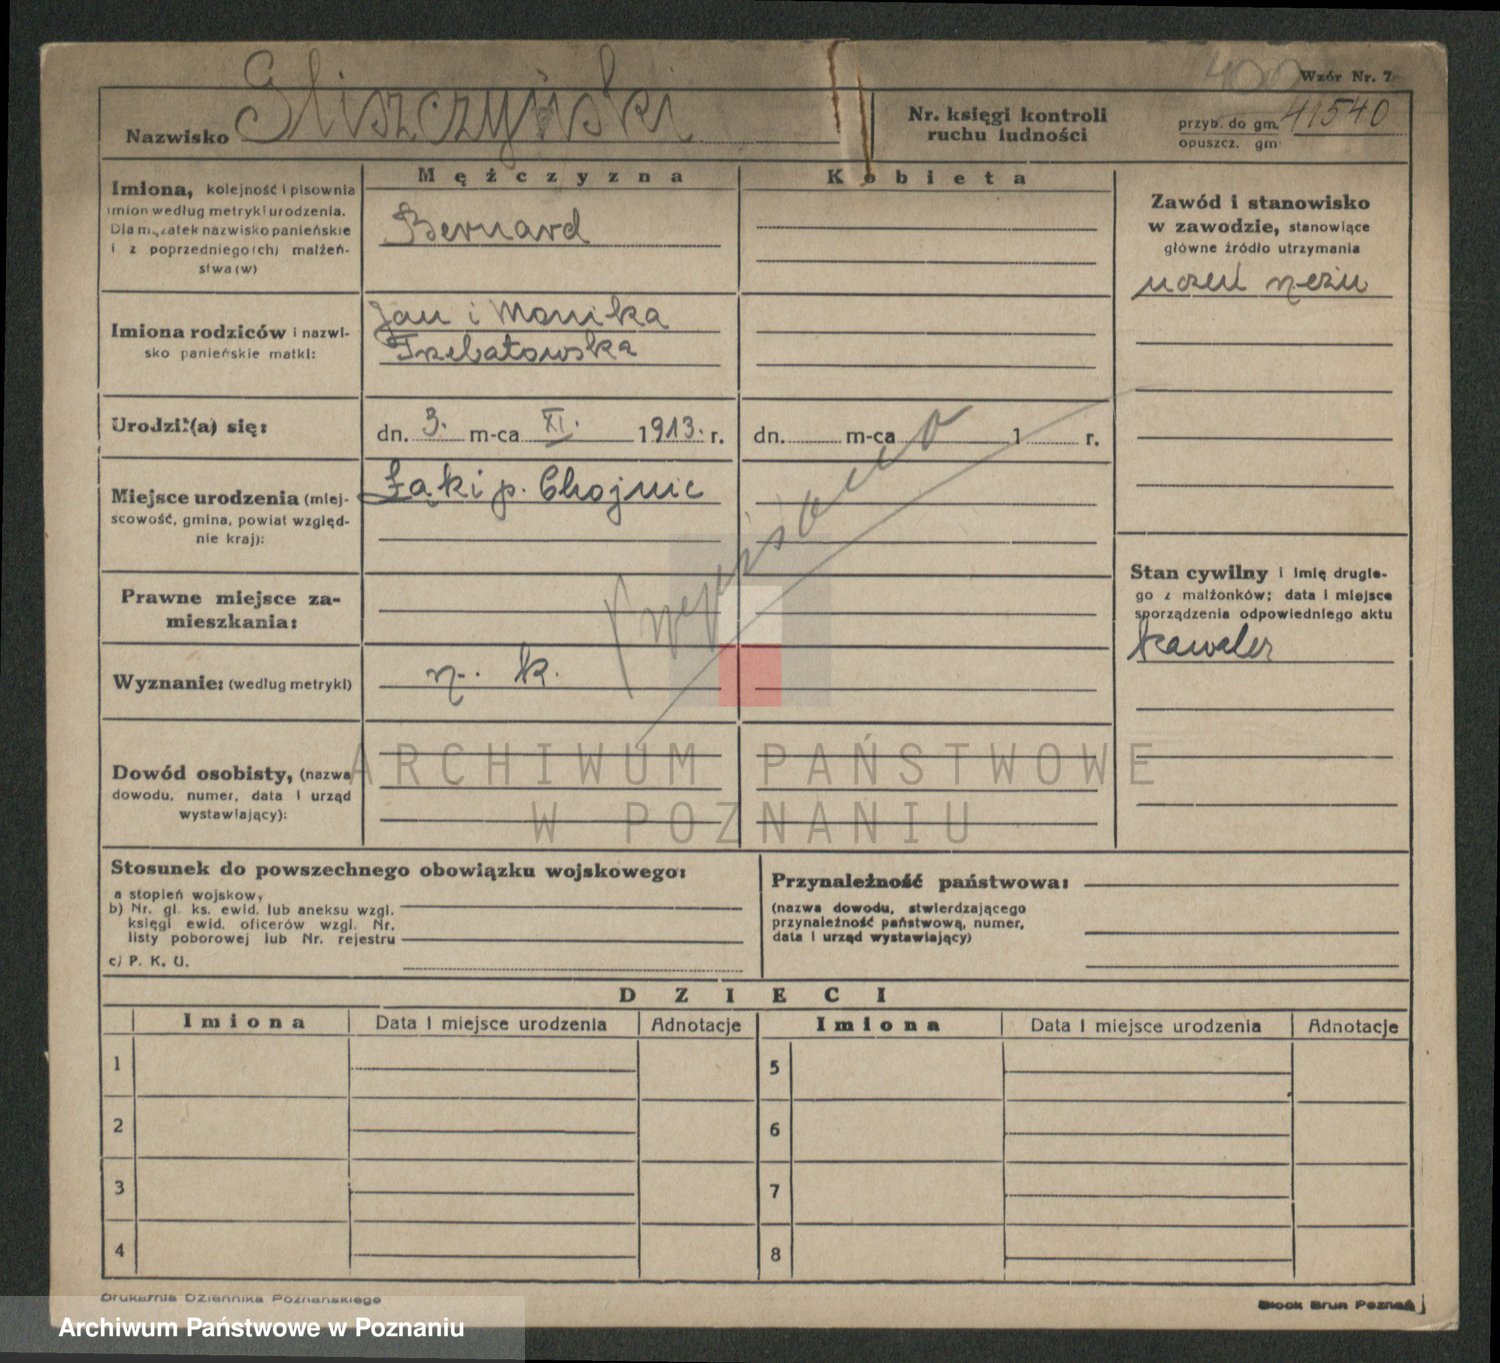 Wzór Nr. 7
400
Nazwisko Gliszczyński
Nr. księgi kontroli
ruchu ludności
przyb. do gm. 41540
opuszcz. gm
Mężczyzna
Kobieta
Imiona, kolejność i pisownia
imion według metryki urodzenia.
Dla mężatek nazwisko panieńskie
i z poprzedniego(ch) małżeń-
stwa(w)
Bernard
Zawód i stanowisko
w zawodzie, stanowiące
główne źródło utrzymania
uczeń rzeźn
Imiona rodziców i nazwi-
sko panieńskie matki:
Jan i Monika
Trzebatowska
Urodził(a) się:
dn. 3. m-ca XI. 1913. r.
dn. m-ca 1 r.
Miejsce urodzenia (miej-
scowość, gmina, powiat względ-
nie kraj):
Łąki p. Chojnic
Przepisano
Prawne miejsce za-
mieszkania:
Stan cywilny i imię drugie-
go z małżonków; data i miejsce
sporządzenia odpowiedniego aktu
kawaler
Wyznanie: (według metryki)
rz. k.
Dowód osobisty, (nazwa
dowodu, numer, data i urząd
wystawiający):
ARCHIWUM PAŃSTWOWE
W POZNANIU
Stosunek do powszechnego obowiązku wojskowego:
a stopień wojskowy
b) Nr. gl. ks. ewid. lub aneksu wzgl.
księgi ewid. oficerów wzgl. Nr.
listy poborowej lub Nr. rejestru
c) P. K. U.
Przynależność państwowa:
(nazwa dowodu, stwierdzającego
przynależność państwową, numer,
data i urząd wystawiający)
DZIECI
Imiona Data i miejsce urodzenia Adnotacje Imiona Data i miejsce urodzenia Adnotacje
1 5
2 6
3 7
4 8
Drukarnia Dziennika Poznańskiego
Block Brun Poznań
Archiwum Państwowe w Poznaniu